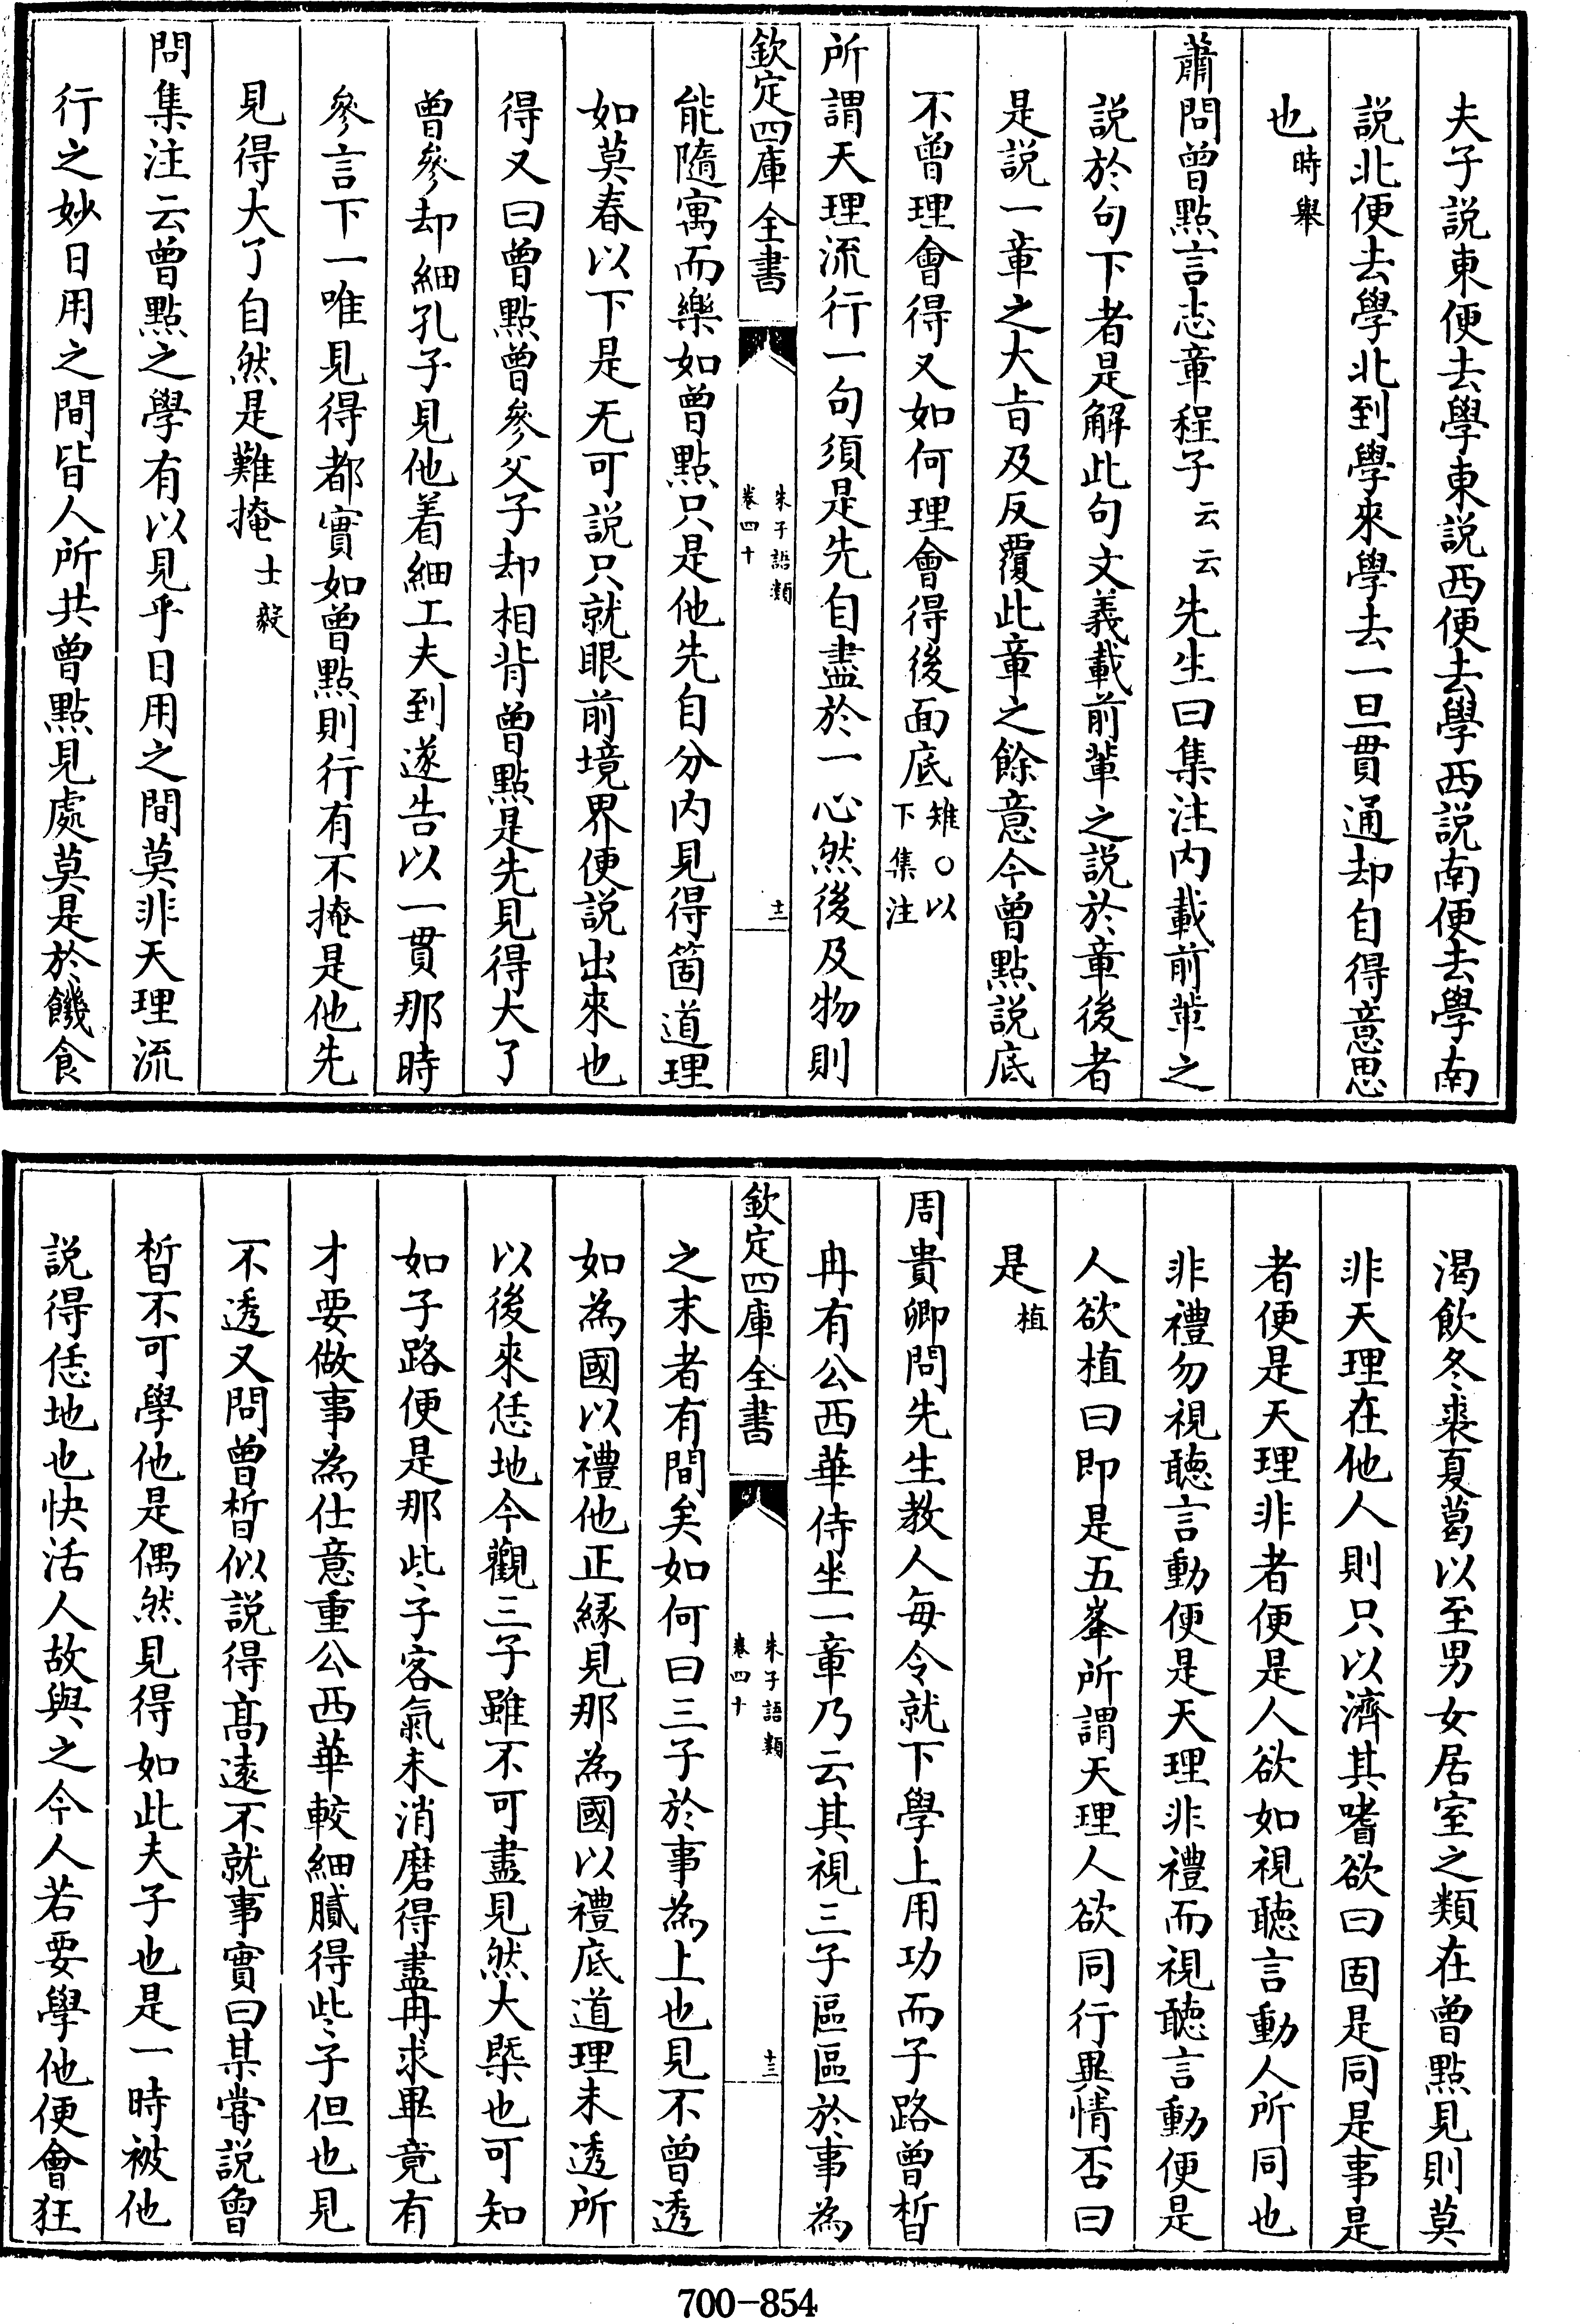 夫子説東便去學東説西便去學西説南便去學南
説北便去學北到學來學去一旦貫通却自得意思
也時舉
蕭問曾點言志章程子云云先生曰集注内載前輩之
説於句下者是解此句文義載前輩之説於章後者
是説一章之大㫖及反覆此章之餘意今曾點説底
不曾理會得又如何理會得後面底雉○以下集注
所謂天理流行一句須是先自盡於一心然後及物則
欽定四庫全書
朱子語類
卷四十
十二
能隨寓而樂如曾點只是他先自分内見得箇道理
如莫春以下是无可説只就眼前境界便説出來也
得又曰曾點曾參父子却相背曾點是先見得大了
曾參却細孔子見他着細工夫到遂告以一貫那時
參言下一唯見得都實如曾點則行有不掩是他先
見得大了自然是難掩士毅
問集注云曾點之學有以見乎日用之間莫非天理流
行之妙日用之間皆人所共曾點見處莫是於饑食
渴飲冬裘夏葛以至男女居室之類在曾點見則莫
非天理在他人則只以濟其嗜欲曰固是同是事是
者便是天理非者便是人欲如視聽言動人所同也
非禮勿視聽言動便是天理非禮而視聽言動便是
人欲植曰即是五峯所謂天理人欲同行異情否曰
是植
周貴卿問先生教人每令就下學上用功而子路曾晳
冉有公西華侍坐一章乃云其視三子區區於事為
欽定四庫全書
朱子語類
卷四十
十三
之末者有間矣如何曰三子於事為上也見不曾透
如為國以禮他正緣見那為國以禮底道理未透所
以後來恁地今觀三子雖不可盡見然大槩也可知
如子路便是那些子客氣未消磨得盡冉求畢竟有
才要做事為仕意重公西華較細膩得些子但也見
不透又問曾晳似説得髙遠不就事實曰某嘗説曾
晳不可學他是偶然見得如此夫子也是一時被他
説得恁地也快活人故與之今人若要學他便會狂
700-854